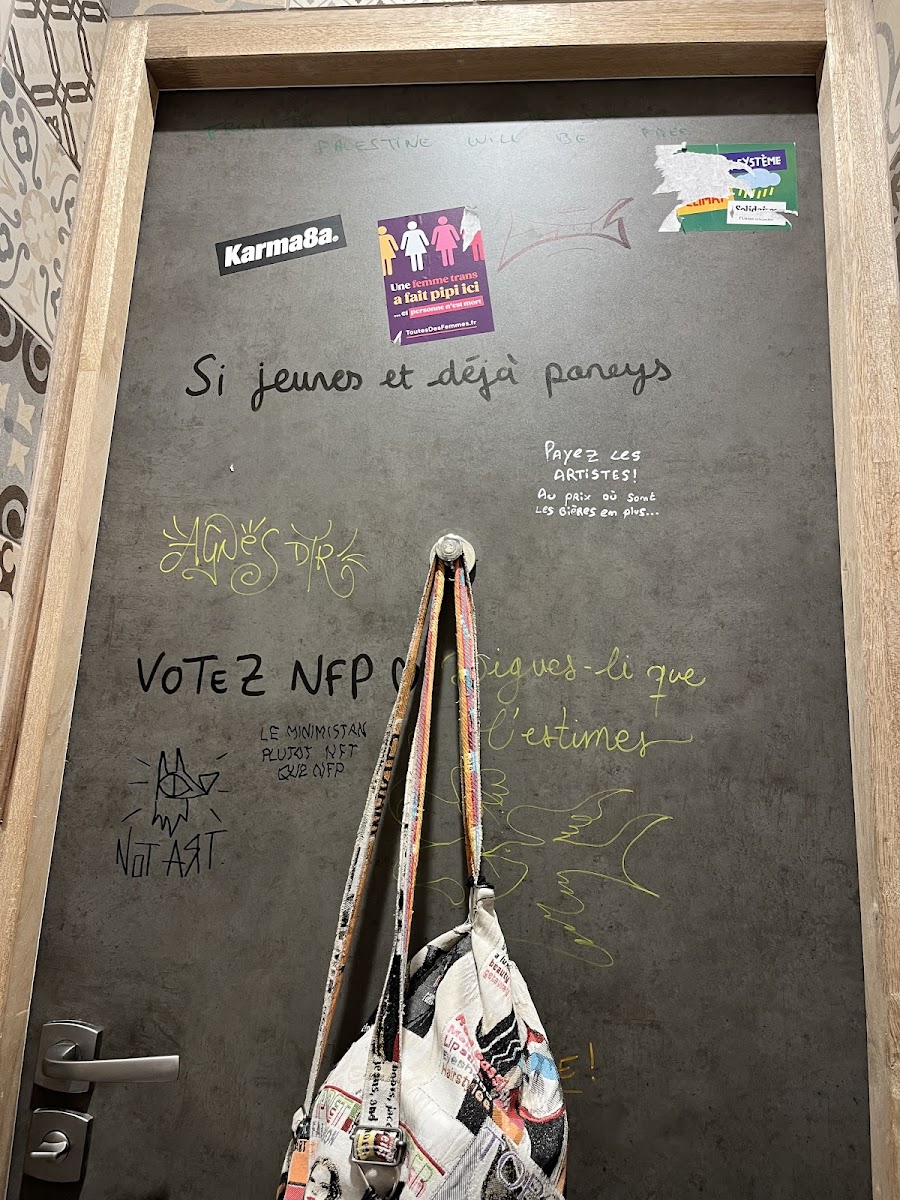 PALESTINE WILL BE FREE
SYSTÈME
CLIMAT
Solidaires
Karma8a.
Une femme trans
a fait pipi ici
... et personne n'est mort
ToutesDesFemmes.fr
Si jeunes et déjà poneys
PAYEZ LES
ARTISTES!
AU PRIX OÙ SONT
LES BIÈRES EN PLUS...
AGNÈS DTR
VOTEZ NFP
Digues-li que
l'estimes
LE MINIMISTAN
PLUTOT NFT
QUE NFP
NOT ART.
beauty